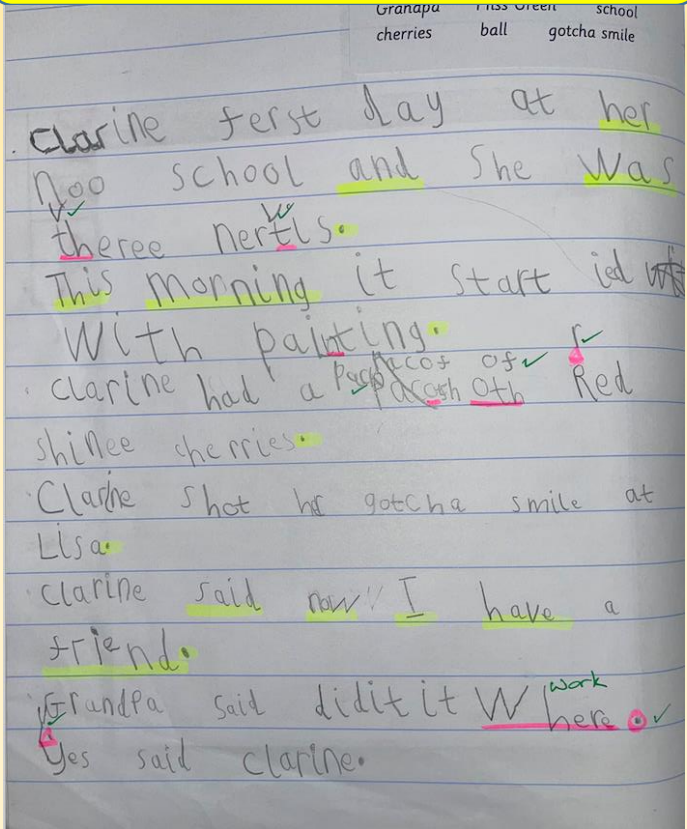 Grandpa Miss Green school
cherries ball gotcha smile
Clarine ferst day at her
noo school and She was
theree nertls.
This morning it start ied
With painting.
Pacos of
clarine had a Red
shinee cherries.
Clarine shot her gotcha smile at
Lisa.
clarine said now I have a
friend.
work
Grandpa said didit it W here.
Yes said clarine.